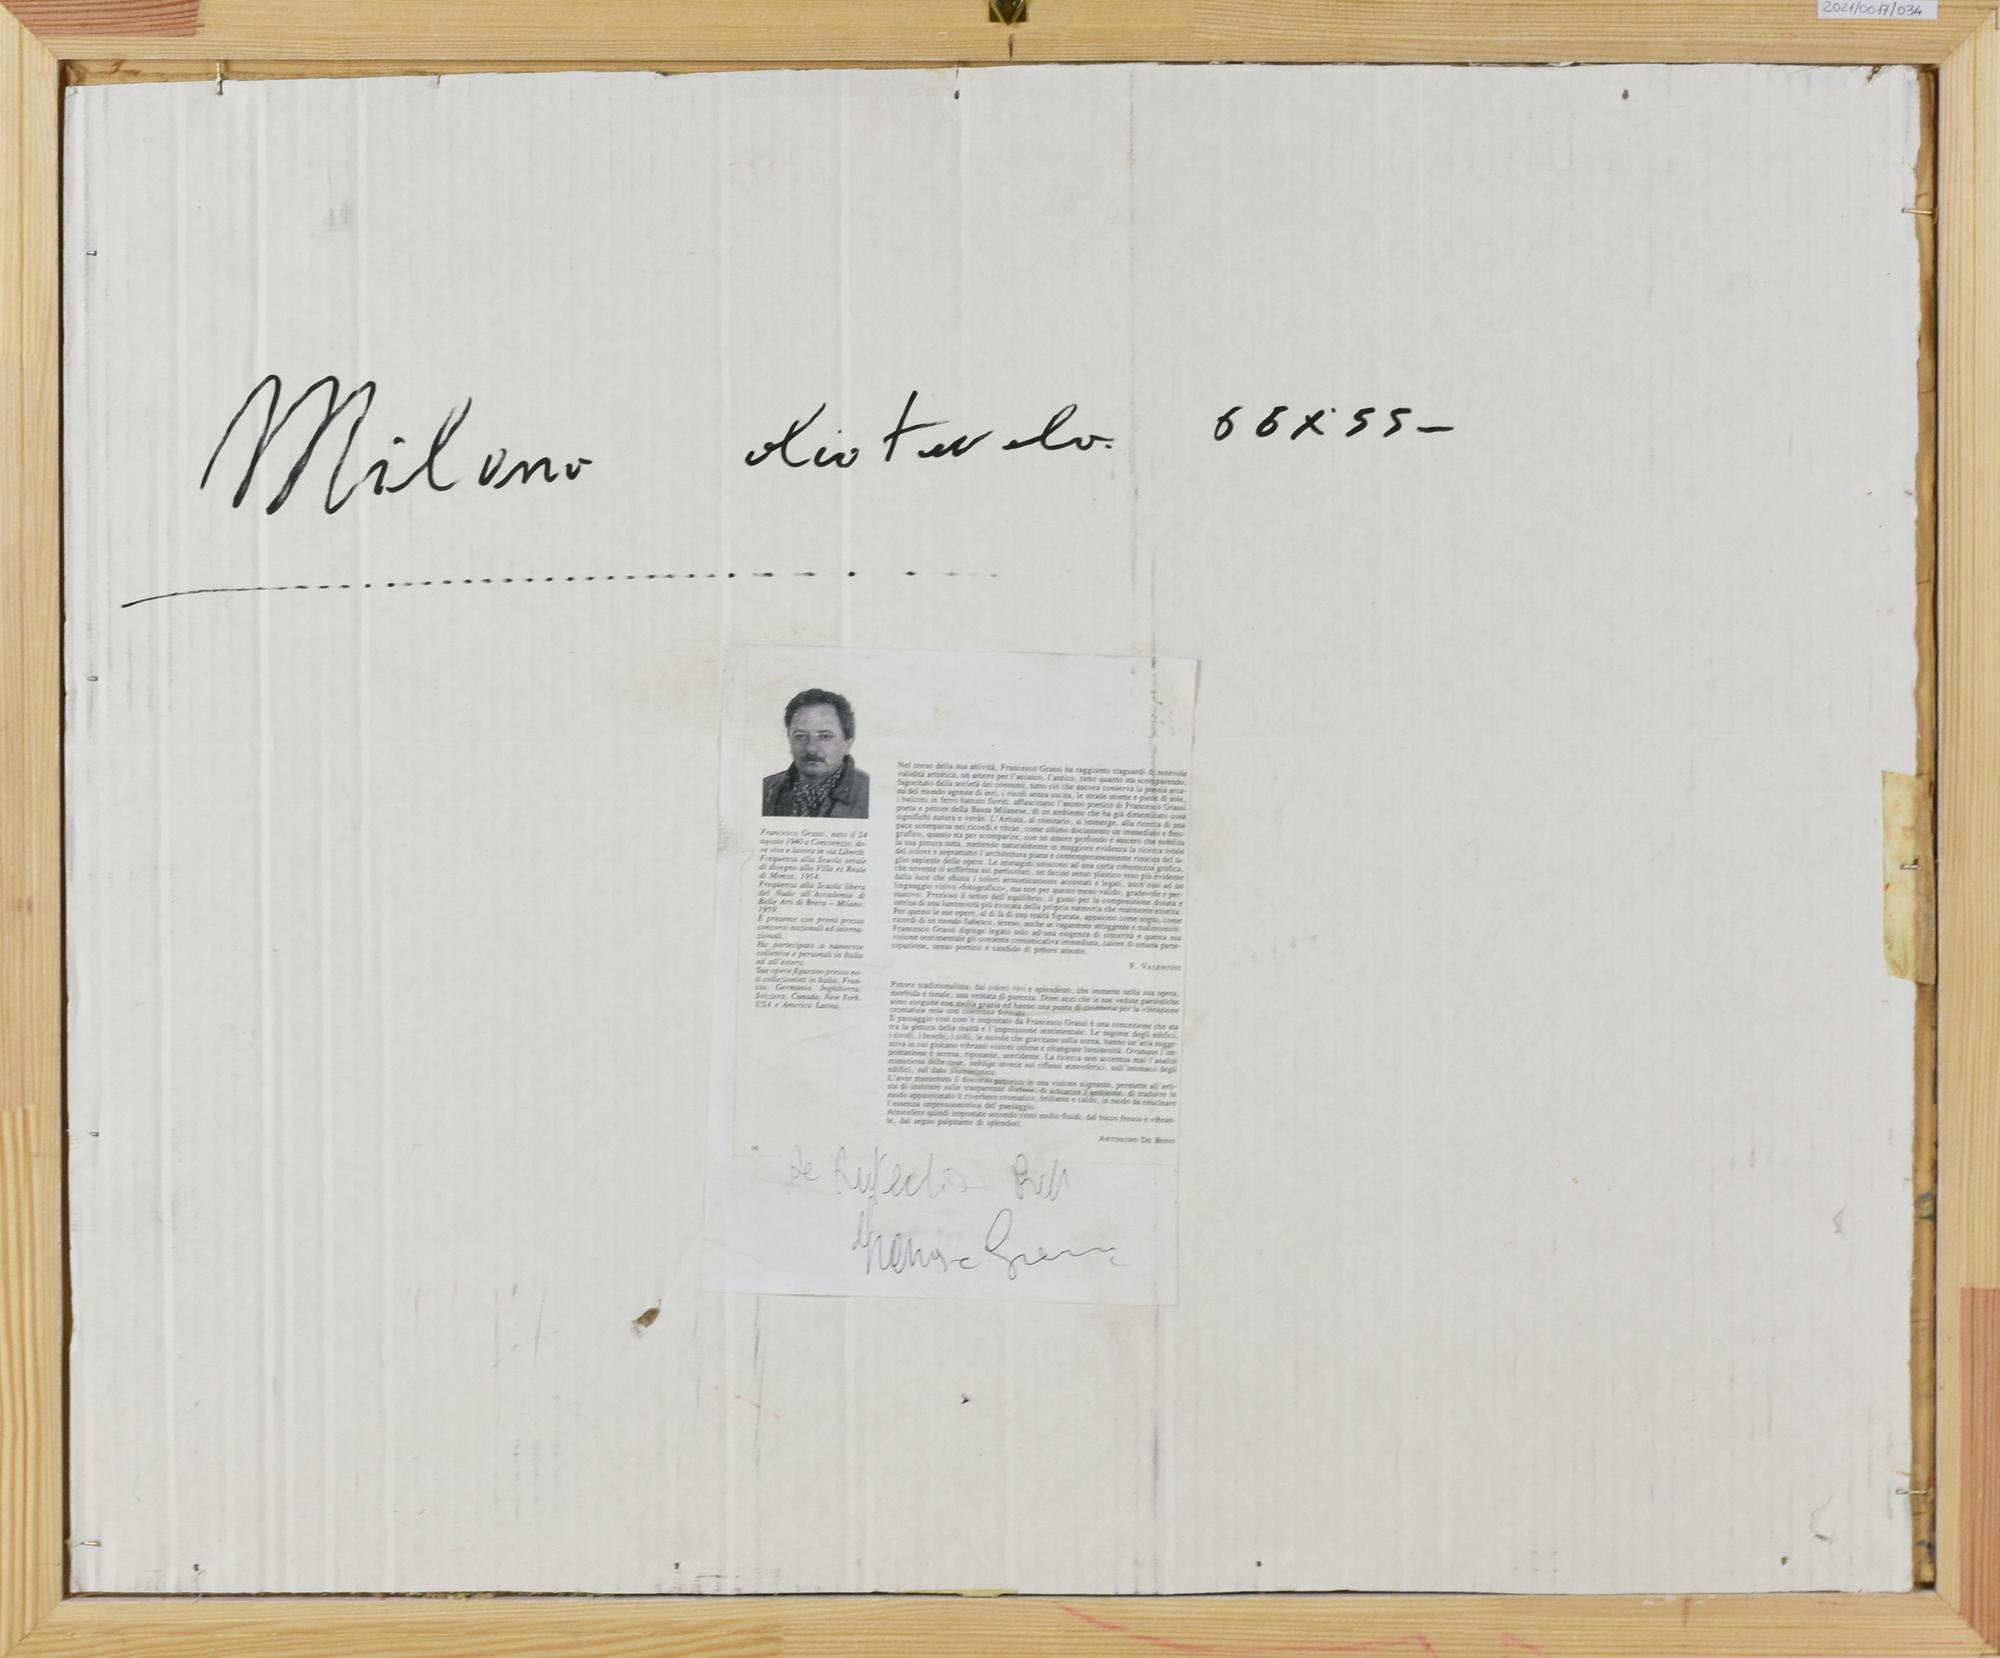 2021/0017/034
Milano olio tavola. 66x55-
Francesco Grassi, nato il 24
agosto 1940 a Concorezzo, do-
ve vive e lavora in via Libertà.
Frequenza alla Scuola serale
di disegno alla Villa ex Reale
di Monza, 1954.
Frequenza alla Scuola libera
del Nudo all'Accademia di
Belle Arti di Brera – Milano,
1959.
È presente con premi presso
concorsi nazionali ed interna-
zionali.
Ha partecipato a numerose
collettive e personali in Italia
ed all'estero.
Sue opere figurano presso no-
ti collezionisti in Italia, Fran-
cia, Germania, Inghilterra,
Svizzera, Canada, New York,
USA e America Latina.
Nel corso della sua attività, Francesco Grassi ha raggiunto traguardi di notevole
validità artistica, un amore per l'arcaico, l'antico, tutto quanto sta scomparendo,
fagocitato dalla società dei consumi, tutto ciò che ancora conserva la poesia arca-
na del mondo agreste di ieri, i vicoli senza uscita, le strade strette e piene di sole,
i balconi in ferro battuto fioriti, affascinano l'animo poetico di Francesco Grassi
poeta e pittore della Bassa Milanese, di un ambiente che ha già dimenticato cosa
significhi natura e verde. L'Artista, al contrario, si immerge, alla ricerca di una
pace scomparsa nei ricordi e ritrae, come ultimo documento un immediato e foto-
grafico, quanto sta per scomparire, con un amore profondo e sincero che nobilita
la sua pittura tutta, mettendo naturalmente in maggiore evidenza la ricerca totale
del colore e soprattutto l'architettura piana e contemporaneamente riuscita del ta-
glio sapiente delle opere. Le immagini uniscono ad una certa robustezza grafica,
che sovente si sofferma sui particolari, un deciso senso plastico reso più evidente
dalla luce che sfuma i colori armonicamente accostati e legati, anch'essi ad un
linguaggio visivo «fotografico», ma non per questo meno valido, gradevole e per-
suasivo. Prezioso il senso dell'equilibrio, il gusto per la composizione dosata e
intrisa di una luminosità più evocata della propria memoria che realmente esistita.
Per questo le sue opere, al di là di una realtà figurata, appaiono come sogni, come
ricordi di un mondo fiabesco, sereno, anche se vagamente struggente e malinconico.
Francesco Grassi dipinge legato solo ad una esigenza di sincerità e questa sua
visione sentimentale gli consente comunicativa immediata, calore di umana parte-
cipazione, senso poetico e candido di pittore attento.
F. Valentini
Pittore tradizionalista, dai colori vivi e splendenti, che immette nella sua opera,
morbida e tonale, una ventata di purezza. Direi anzi che le sue vedute paesistiche
sono eseguite con molta grazia ed hanno una punta di civetteria per la vibrazione
cromatica resa con coerenza formale.
Il paesaggio così com'è impostato da Francesco Grassi è una concezione che sta
tra la pittura della realtà e l'impressione sentimentale. Le sagome degli edifici,
i rivoli, i boschi, i colli, le nuvole che gravitano sulla scena, hanno un'aria sugge-
stiva in cui giocano vibranti visioni intime e sfrangiate luminosità. Ovunque l'im-
postazione è serena, riposante, sorridente. La ricerca non accentua mai l'analisi
minuziosa delle cose, indulge invece sui riflessi atmosferici, sull'intonaco degli
edifici, sul dato illuministico.
L'aver mantenuto il discorso pittorico in una visione sognante, permette all'arti-
sta di insistere sulle trasparenze di schiarire l'ambiente, di tradurre in
modo appassionato il riverbero cromatico, brillante e caldo, in modo da enucleare
l'essenza impressionistica del paesaggio.
Atmosfere quindi impostate secondo ritmi molto fluidi, dal tocco fresco e vibran-
te, dal segno palpitante di splendori.
Antonino De Bono